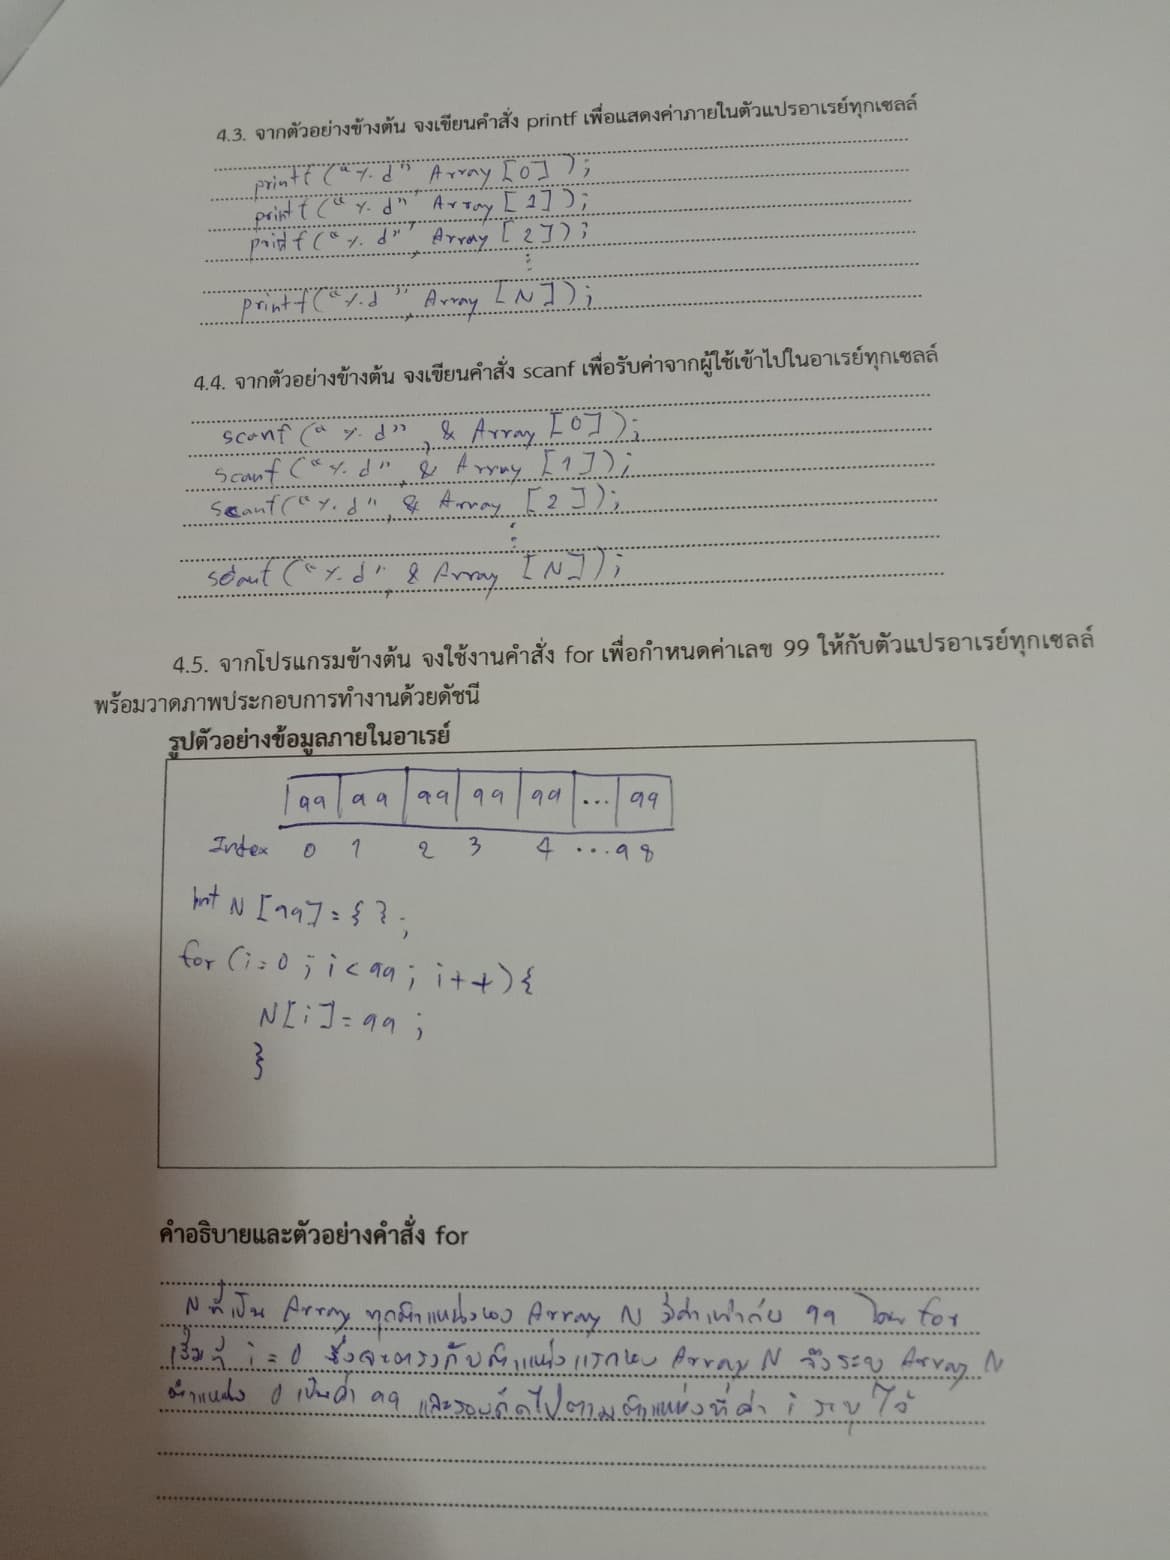 4.3. จากตัวอย่างข้างต้น จงเขียนคำสั่ง printf เพื่อแสดงค่าภายในตัวแปรอาเรย์ทุกเซลล์
printf ("%d", Array [0] );
printf ("%d", Array [1] );
printf ("%d", Array [2] );
⋮
printf ("%d", Array [N] );
4.4. จากตัวอย่างข้างต้น จงเขียนคำสั่ง scanf เพื่อรับค่าจากผู้ใช้เข้าไปในอาเรย์ทุกเซลล์
scanf ("%d", & Array [0] );
scanf ("%d", & Array [1] );
scanf ("%d", & Array [2] );
⋮
scanf ("%d", & Array [N] );
4.5. จากโปรแกรมข้างต้น จงใช้งานคำสั่ง for เพื่อกำหนดค่าเลข 99 ให้กับตัวแปรอาเรย์ทุกเซลล์
พร้อมวาดภาพประกอบการทำงานด้วยดัชนี
รูปตัวอย่างข้อมูลภายในอาเรย์
99 99 99 99 99 ... 99
Index 0 1 2 3 4 ...98
int N [99] = { };
for (i = 0 ; i < 99 ; i++) {
N[i] = 99 ;
}
คำอธิบายและตัวอย่างคำสั่ง for
N ที่เป็น Array ทุกตำแหน่งของ Array N มีค่าเท่ากับ 99 โดย for
เริ่มที่ i = 0 ซึ่งจะตรงกับตำแหน่งแรกของ Array N จึงระบุ Array N
ตำแหน่ง 0 เป็นค่า 99 และรอบถัดไปตามตำแหน่งที่ค่า i ระบุไว้